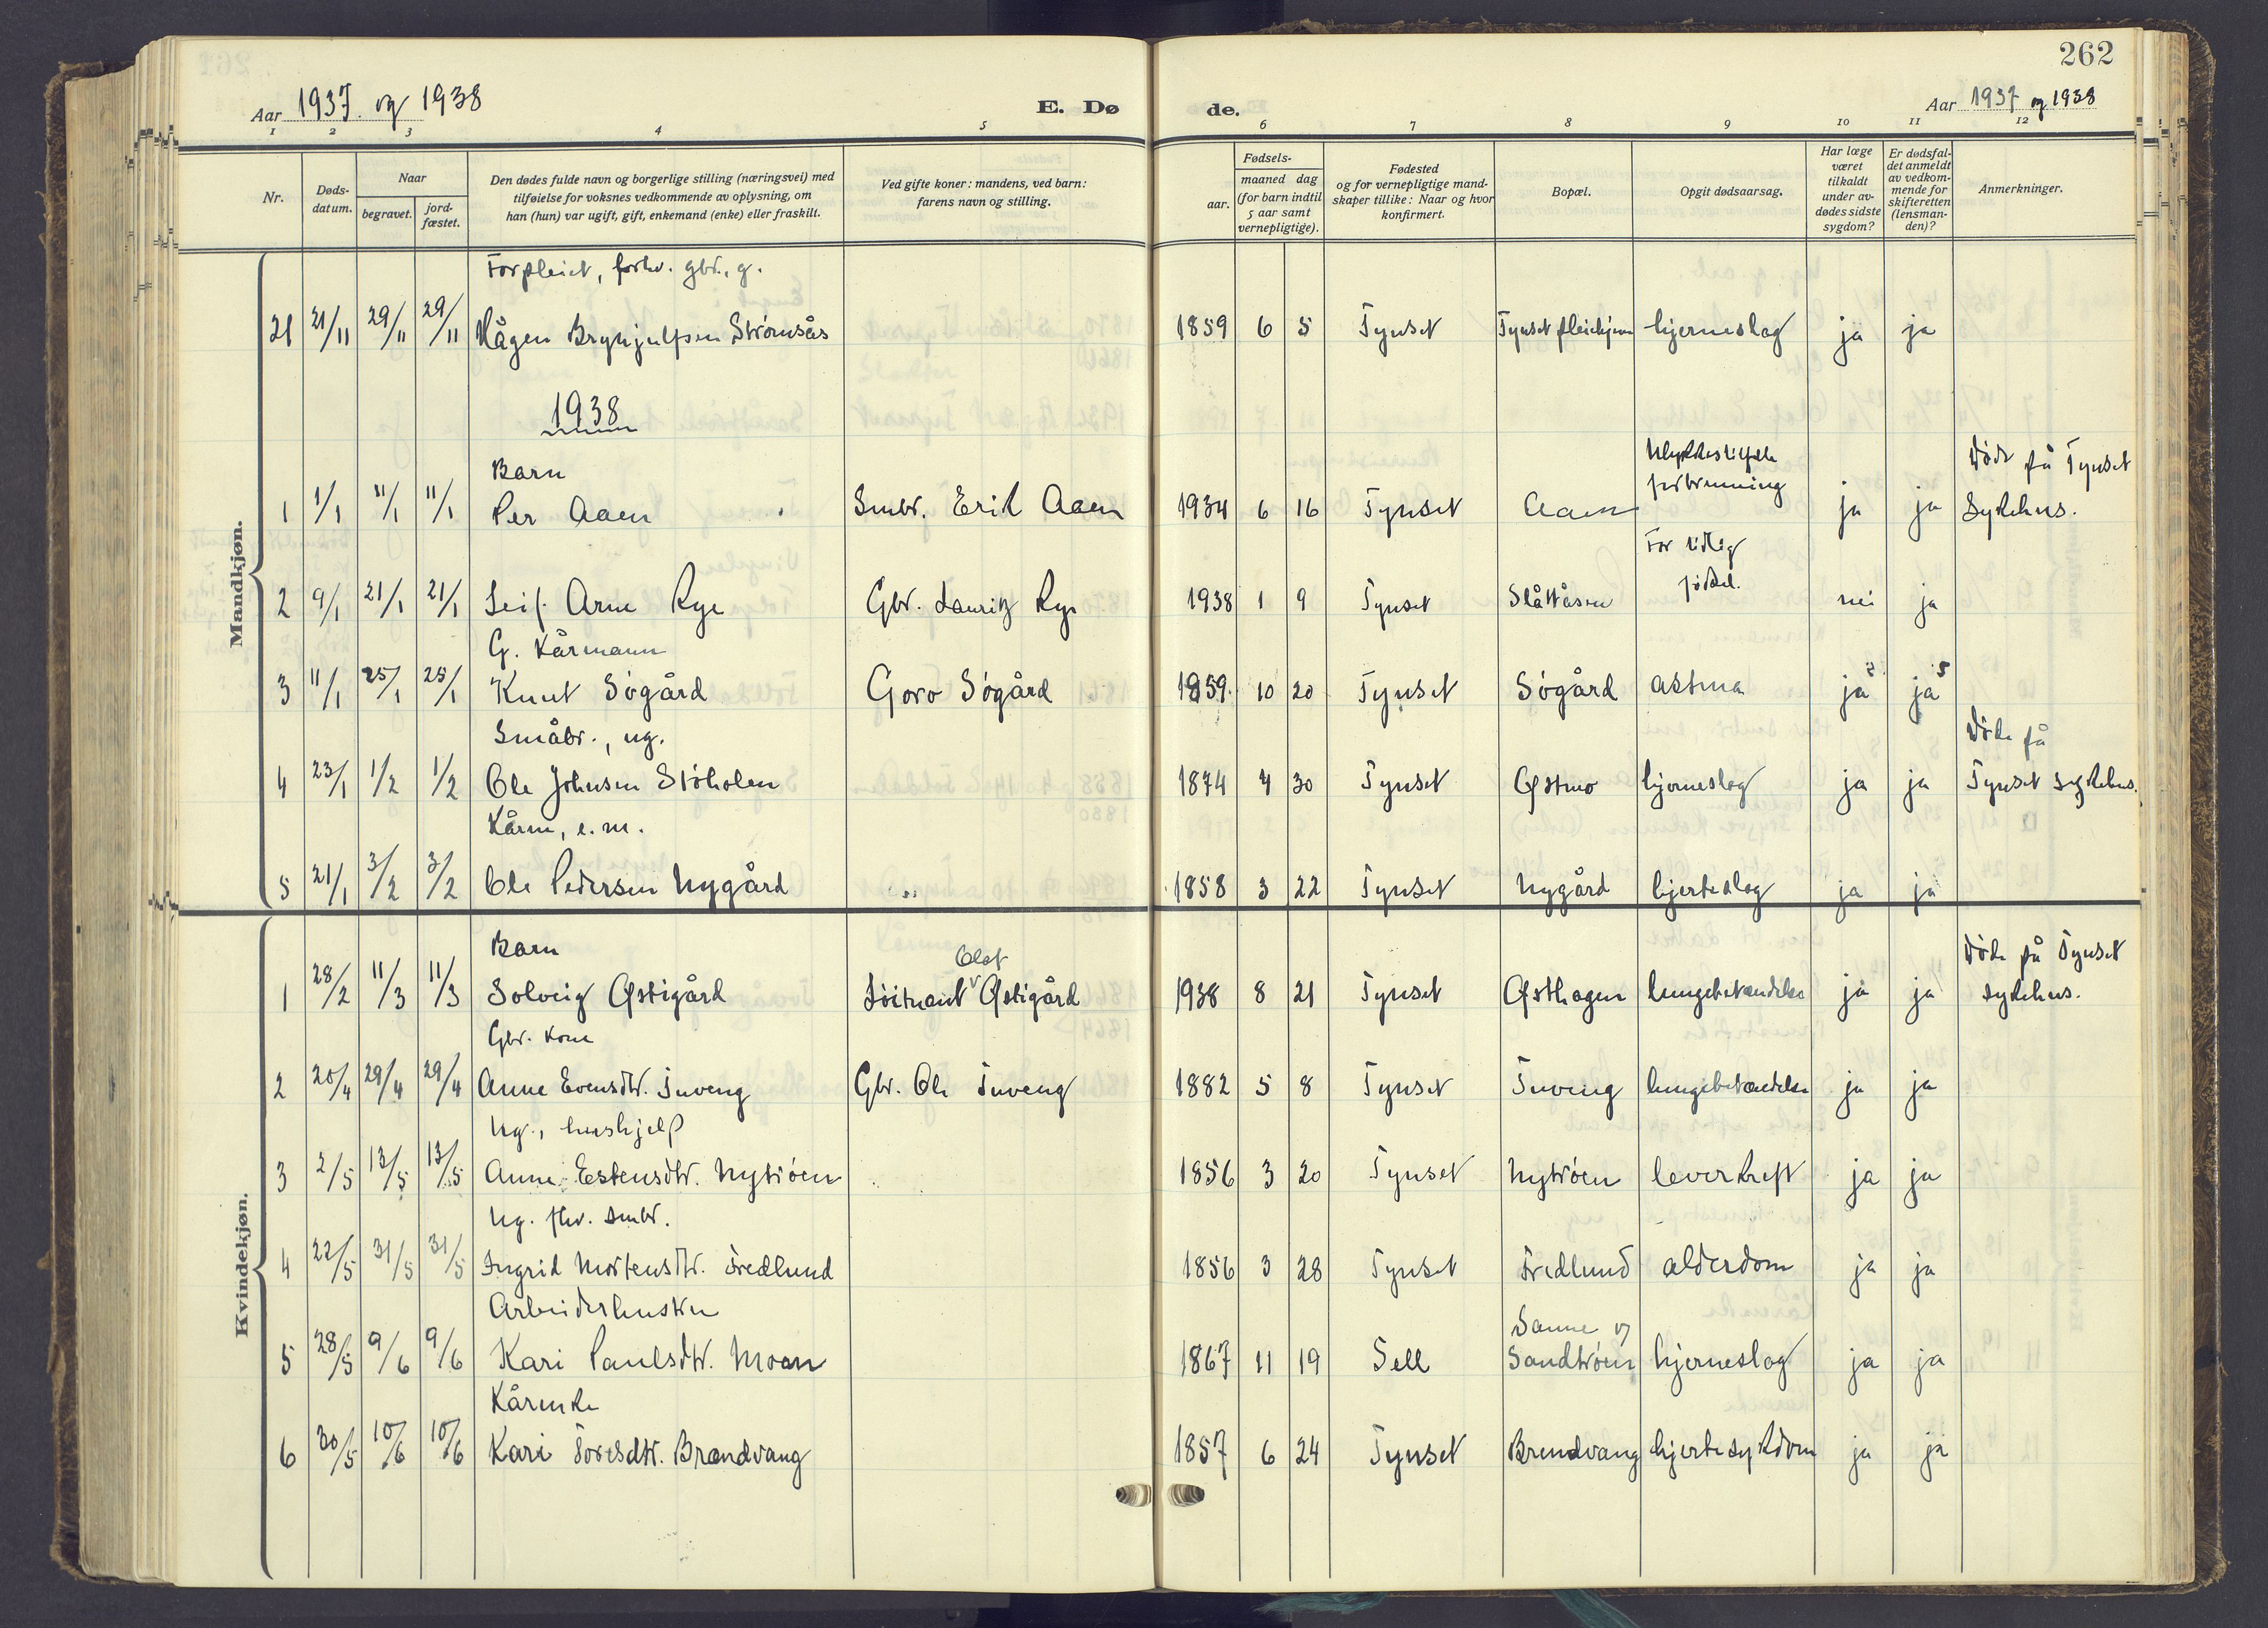 262
Aar 1937 og 1938
E. Dø
de.
Aar 1937 og 1938
1 2 3 4 5 6 7 8 9 10 11 12
Nr.
Døds-
datum.
Naar
begravet.
jord-
fæstet.
Den dødes fulde navn og borgerlige stilling (næringsvei) med
tilføielse for voksnes vedkommende av oplysning, om
han (hun) var ugift, gift, enkemand (enke) eller fraskilt.
Ved gifte koner: mandens, ved barn:
farens navn og stilling.
Fødsels-
aar.
maaned dag
(for barn indtil
5 aar samt
vernepligtige).
Fødested
og for vernepligtige mand-
skaper tillike: Naar og hvor
konfirmert.
Bopæl.
Opgit dødsaarsag.
Har læge
været
tilkaldt
under av-
dødes sidste
sygdom?
Er dødsfal-
det anmeldt
av vedkom-
mende for
skifteretten
(lensman-
den)?
Anmerkninger.
Mandkjøn.
Forpleiet, forhv. gbr., g.
21 21/11 29/11 29/11 Hågen Brynjulfsen Strømsås 1859 6 5 Tynset Tynset pleiehjem hjerneslag ja ja
1938
Barn Ulykkestilfelle Døde på Tynset
1 1/1 11/1 11/1 Per Aaen Smbr. Erik Aaen 1934 6 16 Tynset Aaen forbrenning ja ja Sykehus.
For tidlig
2 9/1 21/1 21/1 Leif Arne Rye Gbr. Lauritz Rye 1938 1 9 Tynset Slåttåsen fødsel. nei ja
G. Kårmann
3 11/1 25/1 25/1 Knut Søgård Goro Søgård 1859 10 20 Tynset Søgård astma ja ja
Småbr., ug. Døde på
4 23/1 1/2 1/2 Ole Johnsen Støholen 1874 4 30 Tynset Østmo hjerneslag ja ja Tynset sykehus.
Kårm, e.m.
5 21/1 3/2 3/2 Ole Pedersen Nygård „ 1858 3 22 Tynset Nygård hjerteslag ja ja
Kvindekjøn.
Barn Olaf Døde på Tynset
1 28/2 11/3 11/3 Solveig Østigård Løitnant Østigård 1938 8 21 Tynset Østhagen lungebetændelse ja ja sykehus.
Gbr. kone
2 20/4 29/4 29/4 Anne Evensdtr. Tuveng Gbr. Ole Tuveng 1882 5 8 Tynset Tuveng lungebetændelse ja ja
Ug., hushjelp
3 2/5 13/5 13/5 Anne Estensdtr. Nytrøen 1856 3 20 Tynset Nytrøen leverkreft ja ja
Ug. fhv. smbr.
4 22/5 31/5 31/5 Ingrid Mortensdtr. Fredlund 1856 3 28 Tynset Fredlund alderdom ja ja
Arbeiderhustru
5 28/5 9/6 9/6 Kari Paulsdtr. Moan 1867 11 19 Sell Sandtrøen hjerneslag ja ja
Kårenke
6 30/5 10/6 10/6 Kari Toresdtr. Brandvang 1857 6 24 Tynset Brendvang hjertesykdom ja ja